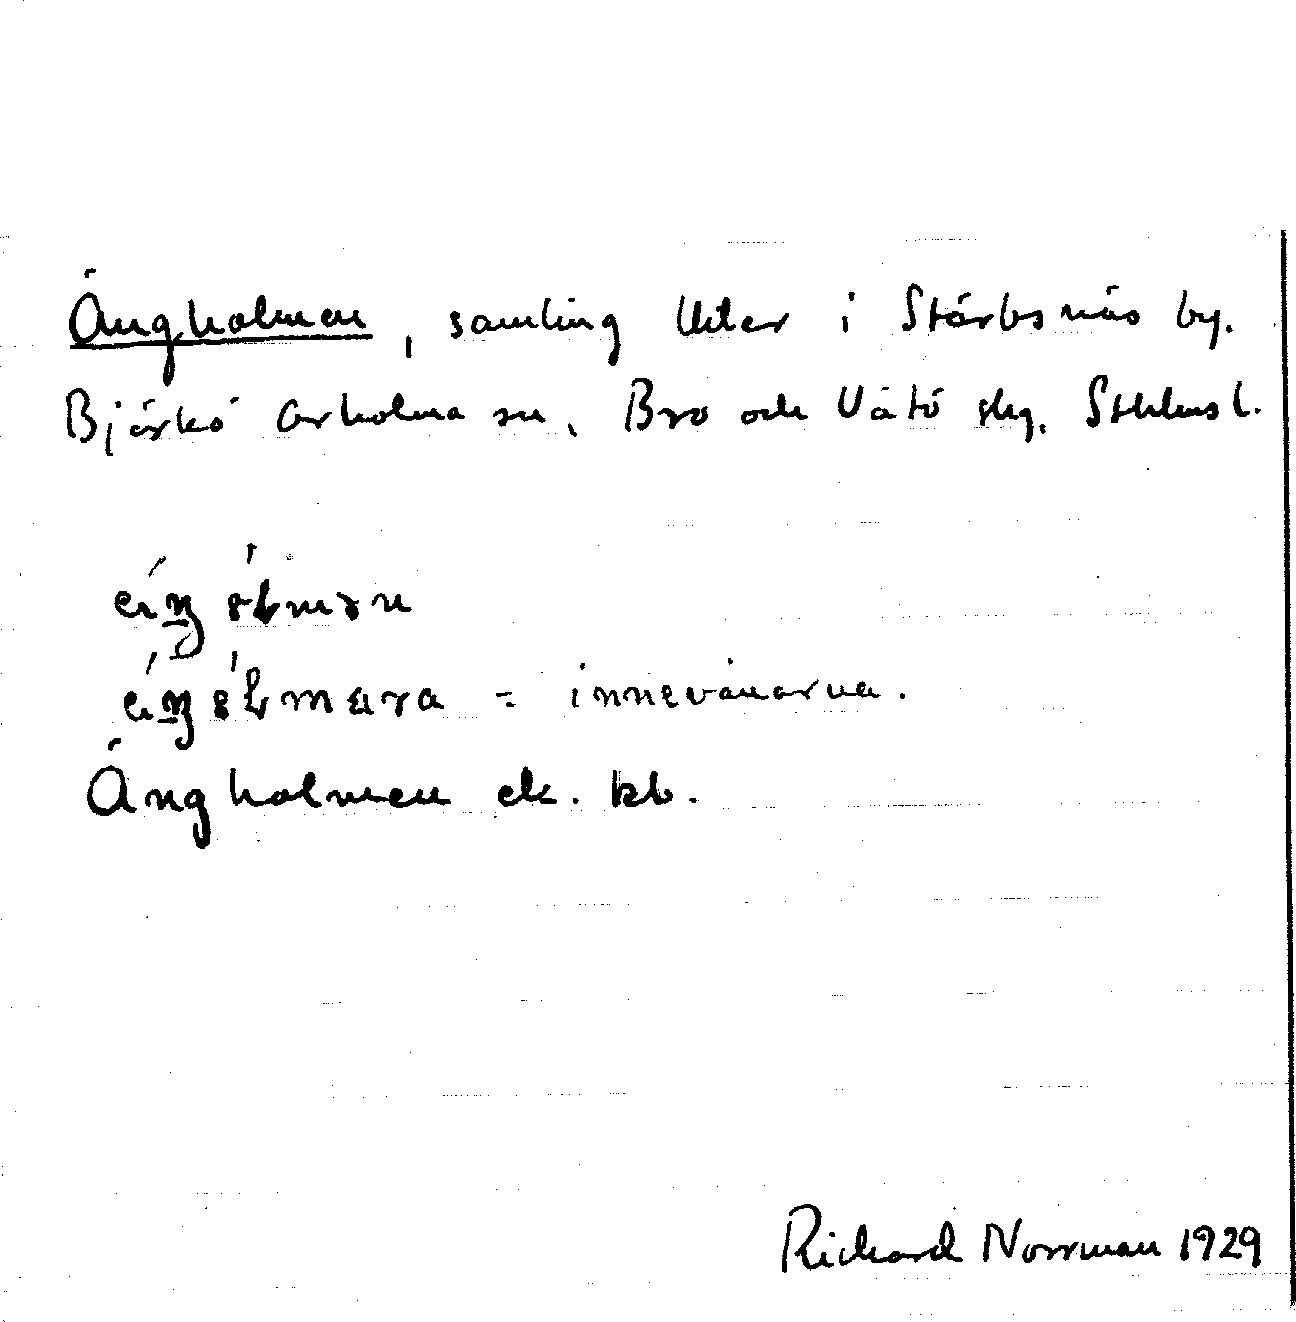 Ängholmen, samling tkter i Stärbsnäs by.
Björkö Arholma sn, Bro och Vätö skg. Sthlms l.
= innevånarna.
Ängholmen ek. kb.
Richard Norrman 1929